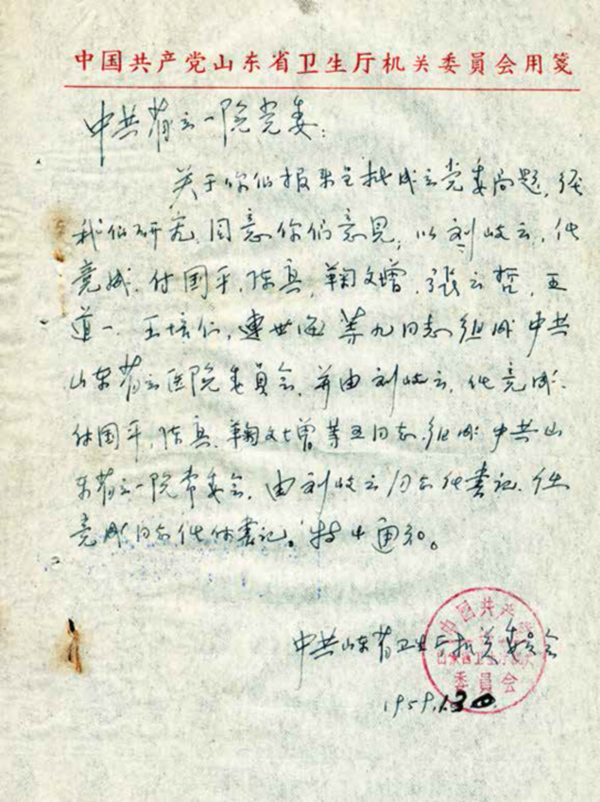 中国共产党山东省卫生厅机关委員会用笺
中共省立一院党委：
关于你们报来主批成立党委问题，经
我们研究，同意你们意見，以刘岐云、任
竞成、付国平、陈真、鞠文增、張云哲、王
道一、王培仁、連世海等九同志组成中共
山东省立医院委員会，并由刘岐云、任竞成、
付国平、陈真、鞠文增等五同志组成中共山
东省立一院常委会，由刘岐云同志任書记，任
竞成同志任付書记。特此通知。
中共山东省卫生厅机关委員会
1959.1.30.
中国共产党
山东省卫生厅机关
委員会